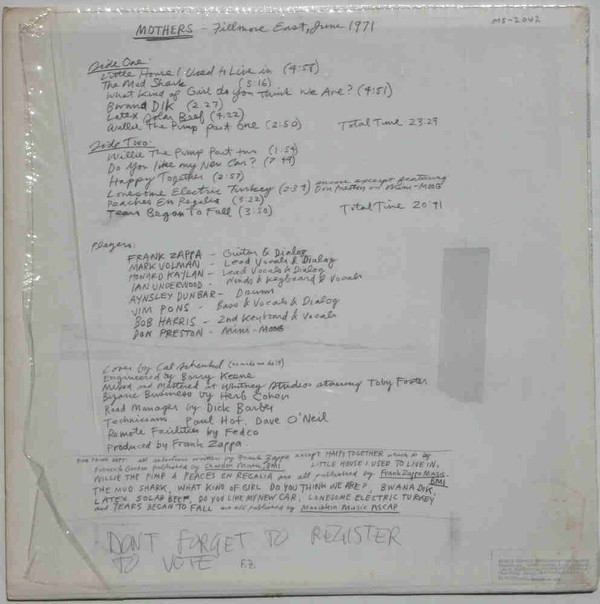 MOTHERS - Fillmore East, June 1971
MS-2042
Side One:
Little House I Used to Live in (4:56)
The Mud Shark (5:16)
What Kind of Girl do you Think We Are? (4:51)
Bwana DIK (2:27)
Latex Solar Beef (4:22)
Willie The Pimp part one (2:50) Total Time 23:29
Side Two:
Willie The Pimp Part two (1:54)
Do You like my New Car? (7:49)
Happy Together (2:57)
Lonesome Electric Turkey (2:34) encore excerpt featuring Don Preston on Mini-MOOG
Peaches En Regalia (3:22)
Tears Began To Fall (3:50) Total Time 20:41
Players:
FRANK ZAPPA - Guitar & Dialog
MARK VOLMAN - Lead Vocals & Dialog
HOWARD KAYLAN - Lead Vocals & Dialog
IAN UNDERWOOD - Winds & Keyboard & Vocals
AYNSLEY DUNBAR - Drums
JIM PONS - Bass & Vocals & Dialog
BOB HARRIS - 2nd Keyboard & Vocals
DON PRESTON - Mini-MOOG
Cover by Cal Schenkel
Engineered by Barry Keene
Mixed and Mastered at Whitney Studios starring Toby Foster
Bizarre Business by Herb Cohen
Road Manager by Dick Barber
Technicians Paul Hof, Dave O'Neil
Remote Facilities by Fedco
Produced by Frank Zappa
FINE PRINT DEPT. all selections written by Frank Zappa except HAPPY TOGETHER which is by
published by Chardon Music, BMI LITTLE HOUSE I USED TO LIVE IN,
WILLIE THE PIMP & PEACES EN REGALIA are all published by Frank Zappa Music, BMI
THE MUD SHARK, WHAT KIND OF GIRL DO YOU THINK WE ARE?, BWANA DIK,
LATEX SOLAR BEEF, DO YOU LIKE MY NEW CAR, LONESOME ELECTRIC TURKEY
and TEARS BEGAN TO FALL are all published by Music ASCAP
DON'T FORGET TO REGISTER
TO VOTE F.Z.